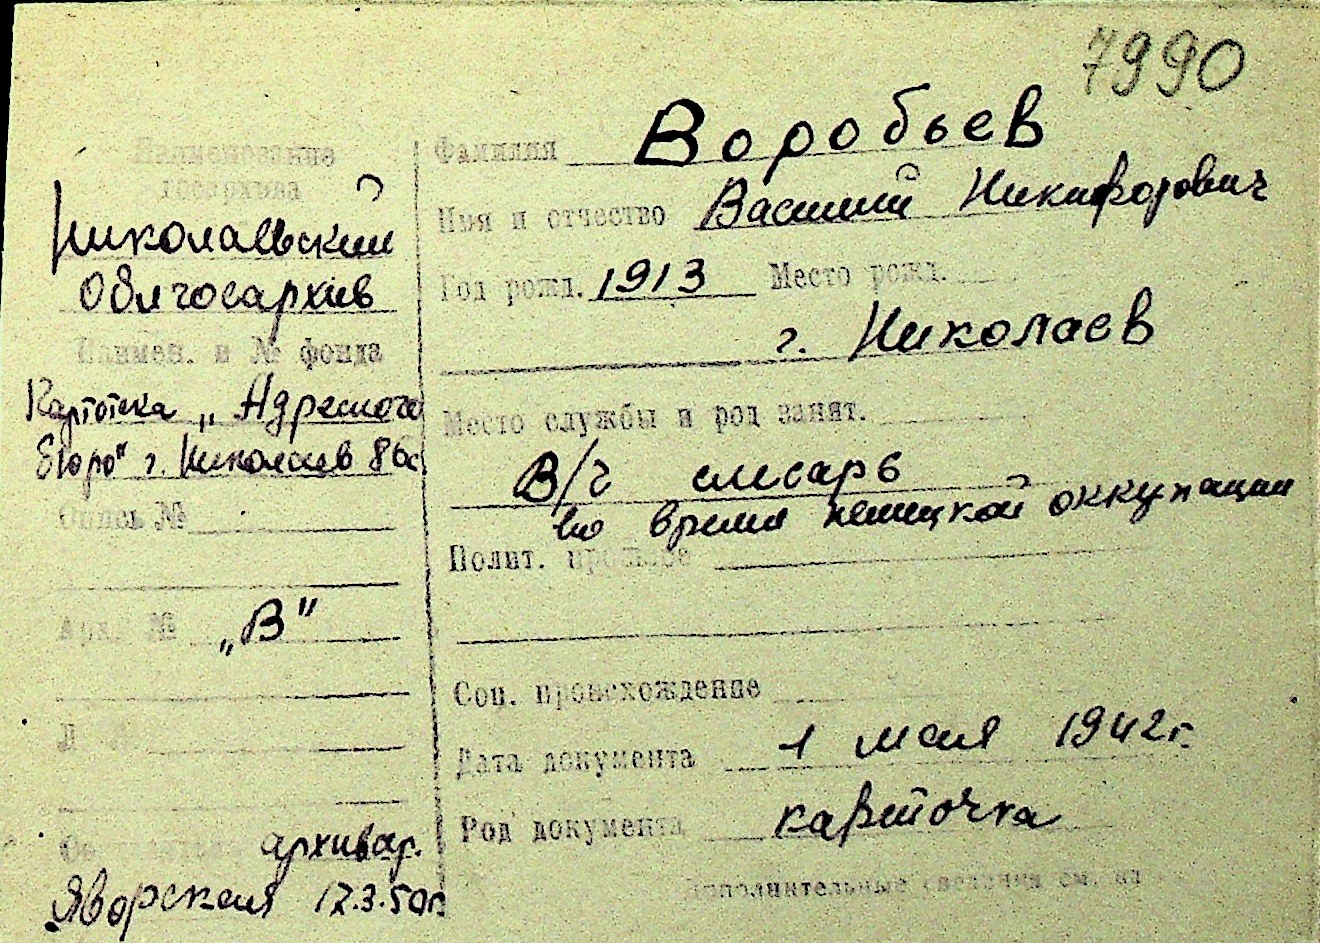 7990
Наименование
госархива
Николаевский
Облгосархив
Наимен. и № фонда
Картотека „Адресного
Бюро" г. Николаев
Опись №
Арх. №  „В"
Л
архивар.
Яворская 17.3.50г.
Фамилия Воробьев
Имя и отчество Василий Никифорович
Год рожд. 1913 Место рожд.
г. Николаев
Место службы и род занят.
В/ч слесарь
во время немецкой оккупации
Полит. прошлое
Соц. происхождение
Дата документа 1 мая 1942г.
Род документа карточка
Дополнительные сведения см. на